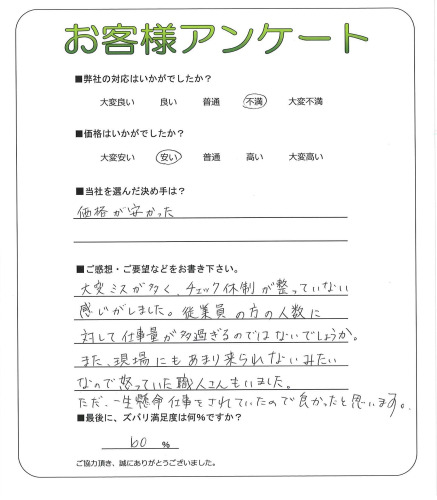 お客様アンケート
■弊社の対応はいかがでしたか？
大変良い 良い 普通 不満 大変不満
■価格はいかがでしたか？
大変安い 安い 普通 高い 大変高い
■当社を選んだ決め手は？
価格が安かった
■ご感想・ご要望などをお書き下さい。
大変ミスが多く、チェック体制が整っていない
感じがしました。従業員の方の人数に
対して仕事量が多過ぎるのではないでしょうか。
また、現場にもあまり来られないみたい
なので怒っていた職人さんもいました。
ただ、一生懸命仕事をされていたので良かったと思います。
■最後に、ズバリ満足度は何％ですか？
60 ％
ご協力頂き、誠にありがとうございました。